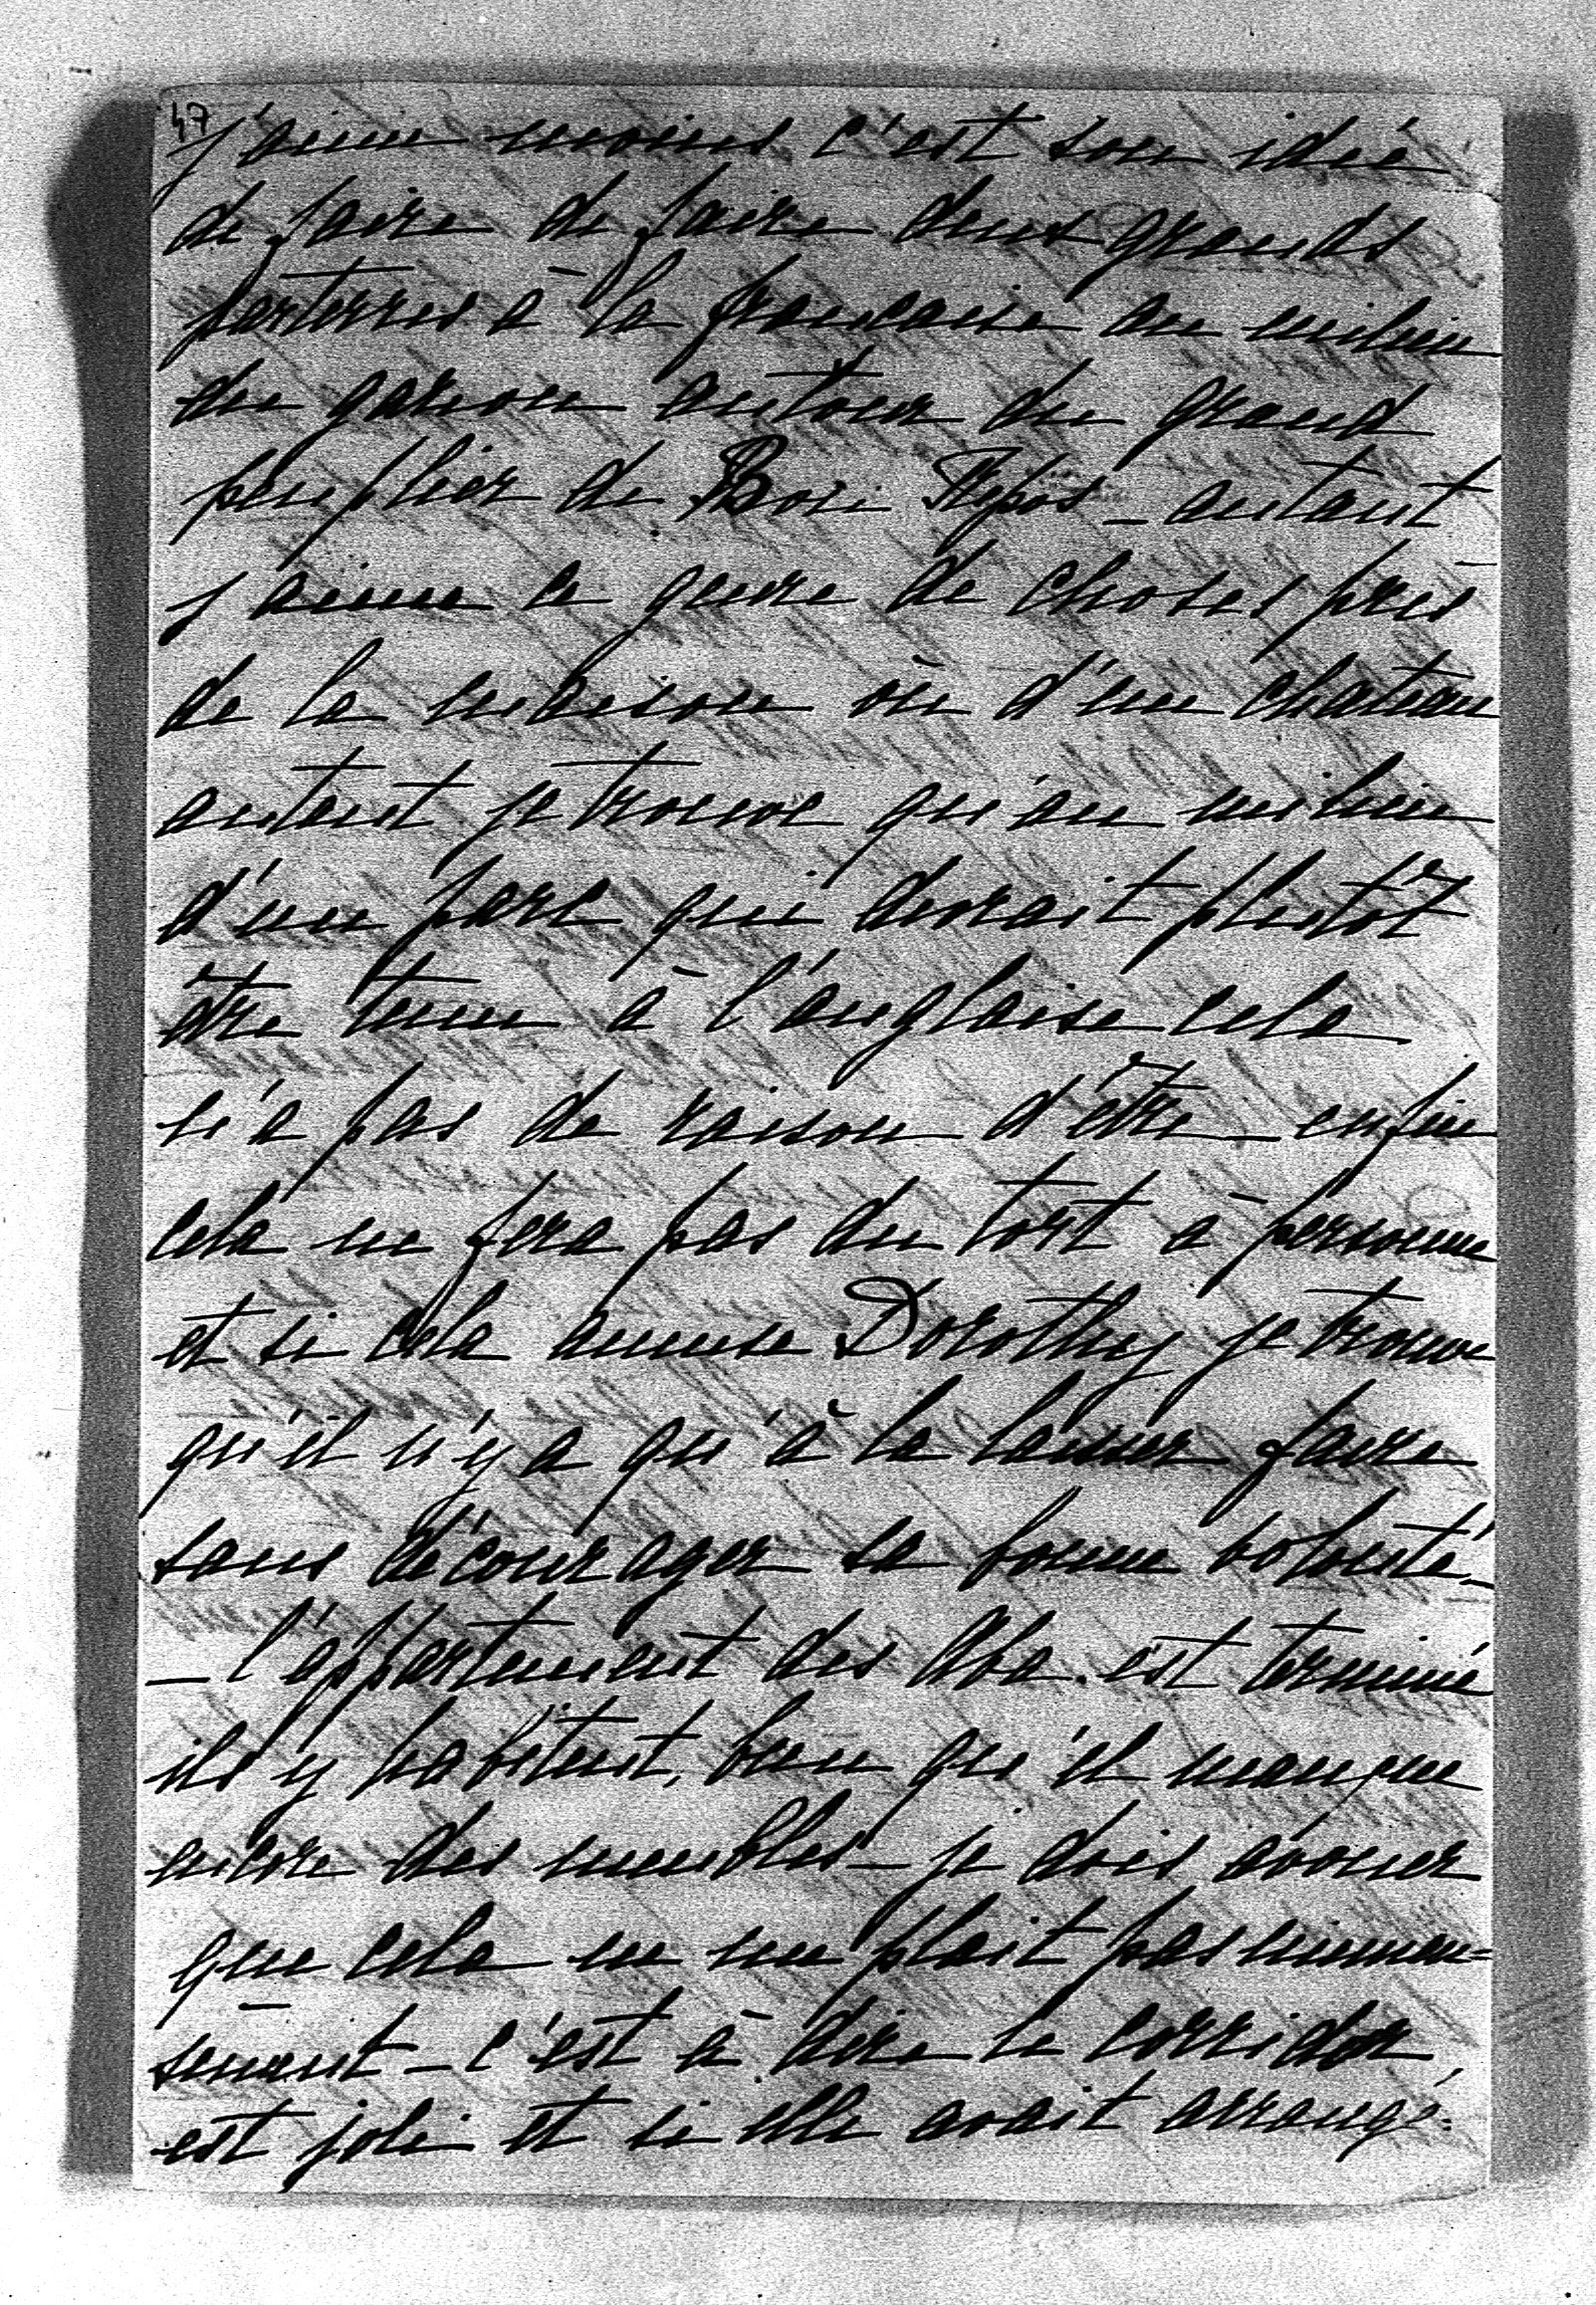 47
j'aime moins c'est son idée
de faire de faire deux grands
parterres à la francaise au milieu
du gazon autour du grand
peuplier de Bon Repos _ autant
j'aime ce genre de choses près
de la maison où d'un chateau
autant je trouve qu'au milieu
d'un parc qui devrait plutôt
être tenu à l'anglaise cela
n'a pas de raison d'être _ enfin
cela ne fera pas du tort à personne
et si cela amuse Dorothy je trouve
qu'il n'y a qu'à la laisser faire
sans décourager sa bonne volonté _
_ l'appartement des est terminé
ils y habitent, bien qu'il manque
encore des meubles _ je dois avouer
que cela ne me plait pas immen=
sément _ c'est à dire le corridor,
est joli et si elle avait arrangé